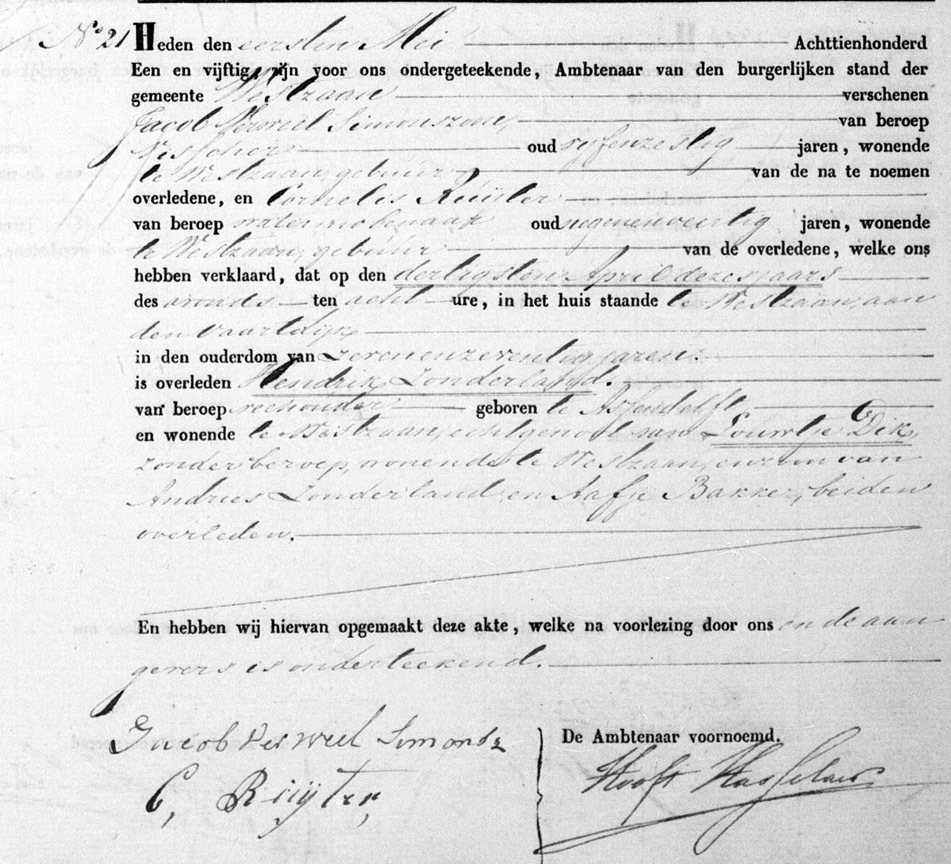 No 21 Heden den eersten Mei Achttienhonderd
Een en vijftig zijn voor ons ondergeteekende, Ambtenaar van den burgerlijken stand der
gemeente Westzaan verschenen
Jacob Verweel Simonszoon, van beroep
Visscher oud vijfenzestig jaren, wonende
te Westzaan, gebuur van de na te noemen
overledene, en Cornelis Ruijter
van beroep oud negenenveertig jaren, wonende
te Westzaan, gebuur van de overledene, welke ons
hebben verklaard, dat op den dertigsten April dezes jaars
des avonds ten acht ure, in het huis staande te Westzaan, aan
den Vaartdijk
in den ouderdom van zevenenzeventig jaren.
is overleden Hendrik Zonderland.
van beroep veehouder geboren te Assendelft
en wonende te Westzaan, echtgenoot van Louwtje Dik,
zonder beroep, wonende te Westzaan, en zoon van
Andries Zonderland, en Aafje Bakker, beiden
overleden.
En hebben wij hiervan opgemaakt deze akte, welke na voorlezing door ons en de aan
gevers is onderteekend.
Jacob Verweel Simonsz
C, Ruijter,
De Ambtenaar voornoemd.
Hooft Hasselaar